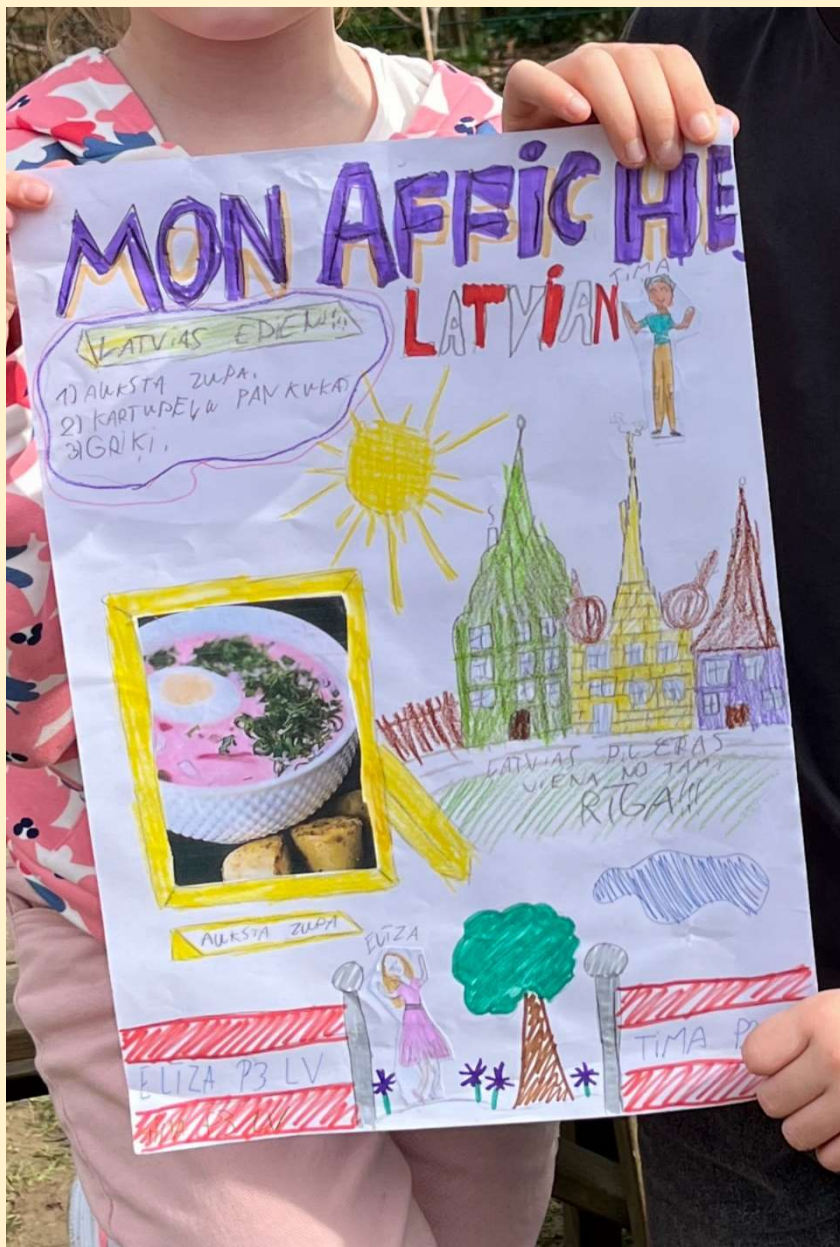 MON AFFICHE
LATVIAN
TIMA
LATVIAS EDIENI!!!
1) AUKSTA ZUPA.
2) KARTUPEĻU PANKUKAS
3) GRIĶI.
LATVIAS PILSĒTAS
VIENA NO TAM
RĪGA!!!
AUKSTA ZUPA
ELĪZA
ELĪZA P3 LV
TIMA